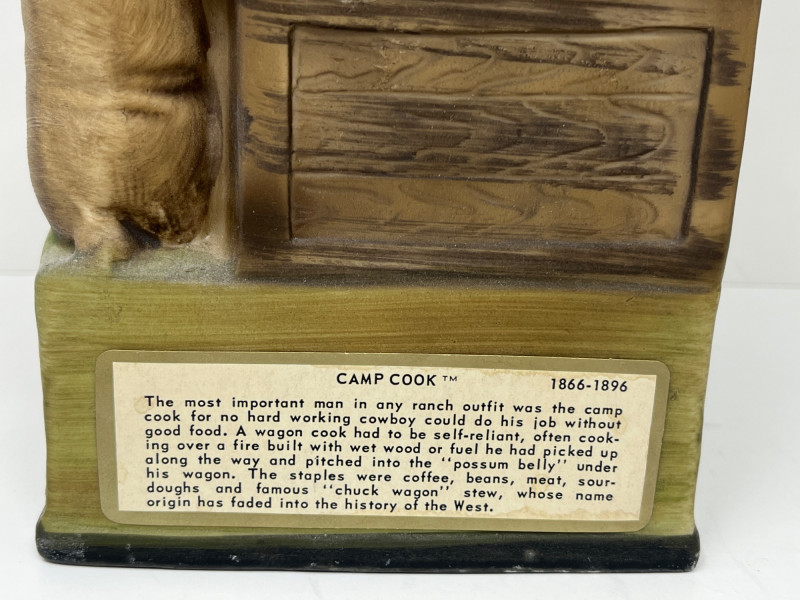 CAMP COOK ™ 1866-1896
The most important man in any ranch outfit was the camp
cook for no hard working cowboy could do his job without
good food. A wagon cook had to be self-reliant, often cook-
ing over a fire built with wet wood or fuel he had picked up
along the way and pitched into the "possum belly" under
his wagon. The staples were coffee, beans, meat, sour-
doughs and famous "chuck wagon" stew, whose name
origin has faded into the history of the West.